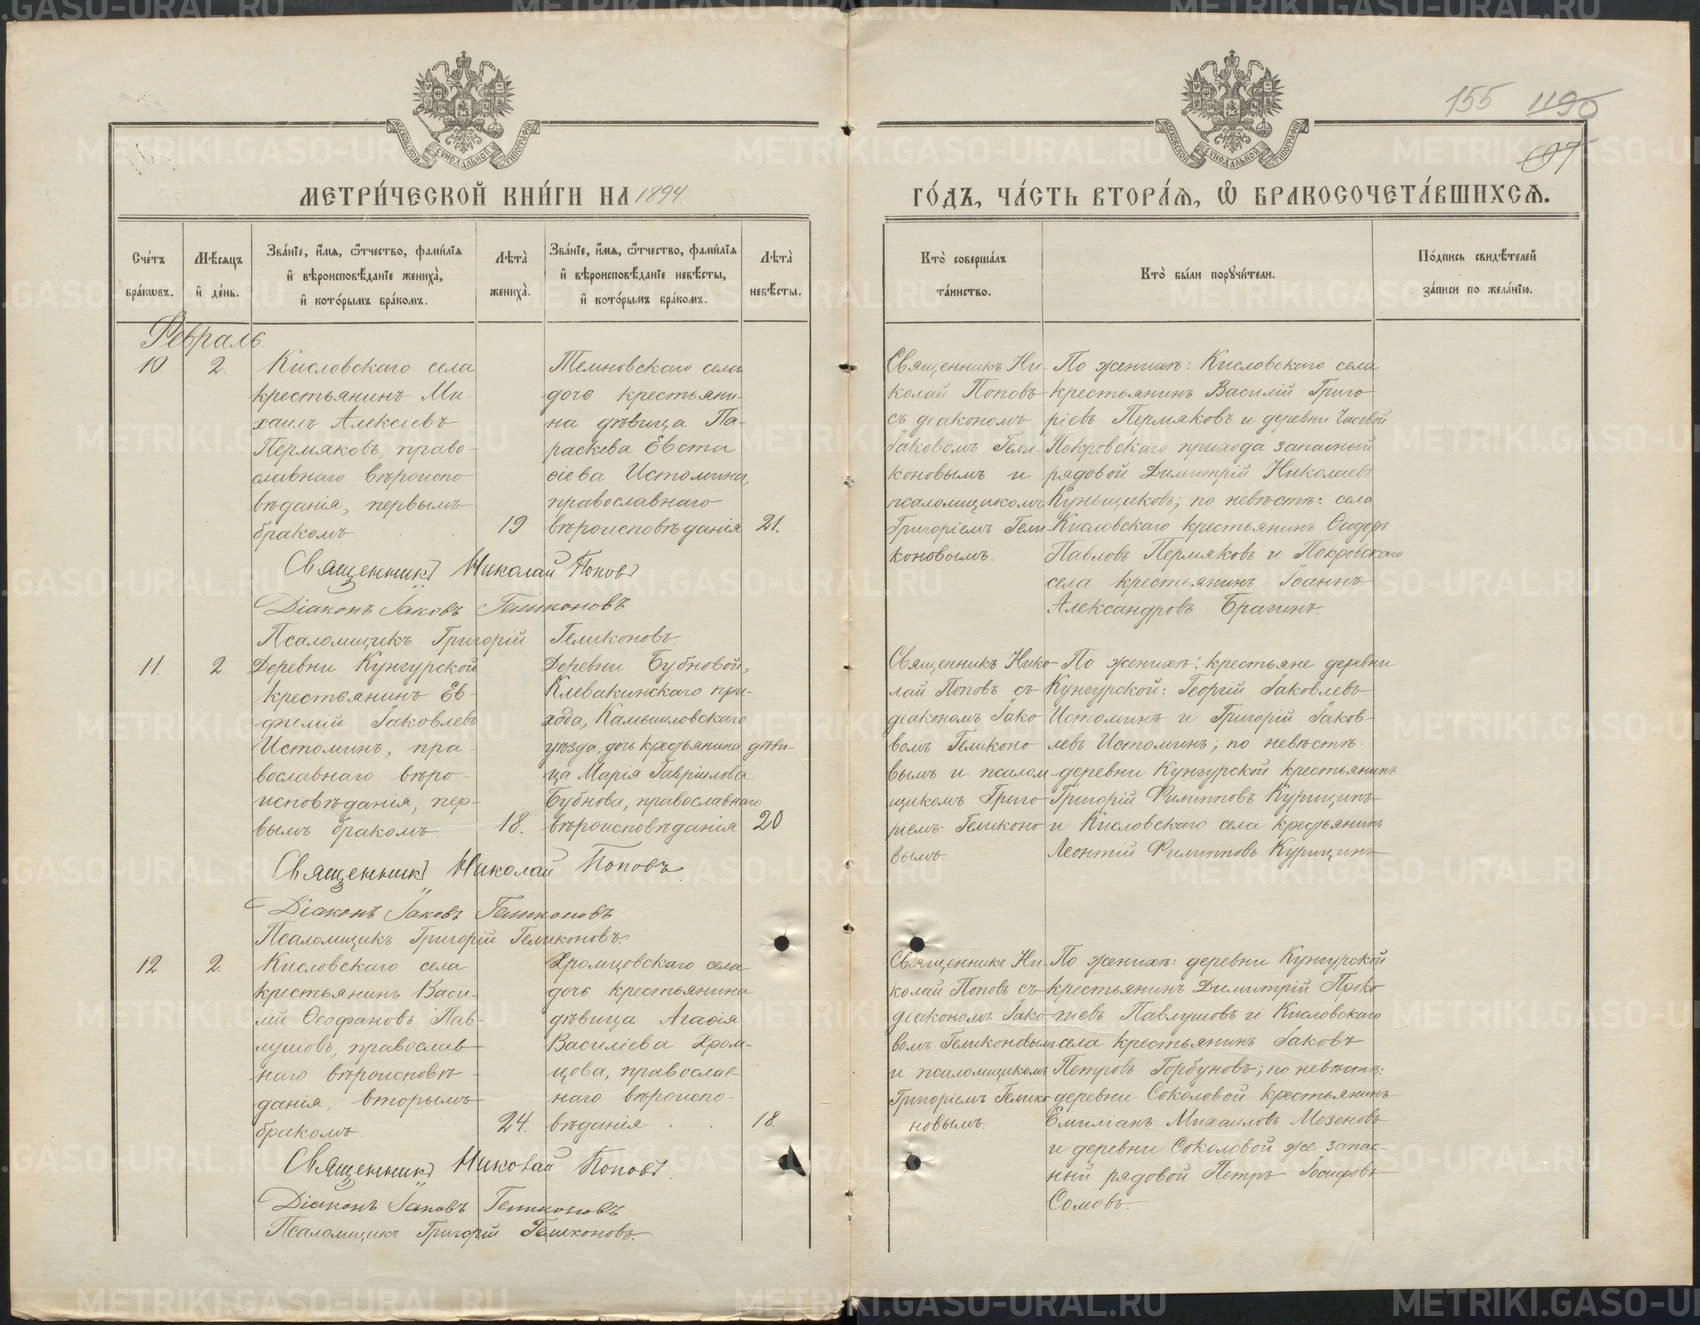 155 1195
697
МЕТРИ́ЧЕСКОЙ КНИ́ГИ НА 1894
ГО́ДЪ, ЧА́СТЬ ВТОРА́Я, Ѽ БРАКОСОЧЕТА́ВШИХСЯ.
Сче́тъ бра́кѡвъ.
Мѣ́сяцъ и де́нь.
Зва́нїе, и́мя, ѻ́тчество, фами́лїя и вѣроисповѣ́данїе жениха̀, и кото́рымъ бра́комъ.
Лѣ́та̀ жениха̀.
Зва́нїе, и́мя, ѻ́тчество, фами́лїя и вѣроисповѣ́данїе невѣ́сты, и кото́рымъ бра́комъ.
Лѣ́та̀ невѣ́сты.
Кто̀ соверша́лъ та́инство.
Кто̀ бы́ли порꙋчи́тели.
По́дпись свидѣ́телей за́писи по жела́нїю.
Февраль
10
2.
Кисловскаго села
крестьянинъ Ми-
хаилъ Алексіевъ
Пермяковъ, право-
славнаго вѣроиспо-
вѣданія, первымъ
бракомъ
19
Темновскаго села
дочь крестьяни-
на дѣвица Па-
раскева Евста
ѳіева Истомина,
православнаго
вѣроисповѣданія
21.
Священникъ Ни-
колай Поповъ
съ діакономъ
Іаковомъ Гели-
коновымъ и
псаломщикомъ
Григоріемъ Гели
коновымъ.
По женихѣ: Кисловскаго села
крестьянинъ Василій Григо
ріевъ Пермяковъ и деревни Часовой
Покровскаго прихода запасный
рядовой Димитрій Николаевъ
Куньщиковъ; по невѣстѣ: села
Кисловскаго крестьянинъ Ѳеодоръ
Павловъ Пермяковъ и Покровскаго
села крестьянинъ Іоаннъ
Александровъ Брагинъ
Священникъ Николай Поповъ
Діаконъ Іаковъ Геликоновъ
Псаломщикъ Григорій Геликоновъ.
11.
2
Деревни Кунгурской
крестьянинъ Ев-
фимій Іаковлевъ
Истоминъ, пра-
вославнаго вѣро-
исповѣданія, пер-
вымъ бракомъ
18.
Деревни Бубновой,
Клевакинскаго при-
хода, Камышловскаго
уѣзда, дочь крестьянина дѣви-
ца Марія Гавріилова
Бубнова, православнаго
вѣроисповѣданія
20
Священникъ Нико-
лай Поповъ съ
діакономъ Іако-
вомъ Геликоно
вымъ и псалом-
щикомъ Григо-
ріемъ Геликоно
вымъ.
По женихѣ: крестьяне деревни
Кунгурской: Георгій Іаковлевъ
Истоминъ и Григорій Іаков-
левъ Истоминъ; по невѣстѣ:
деревни Кунгурской крестьянинъ
Григорій Филипповъ Курицинъ
и Кисловскаго села крестьянинъ
Леонтій Филипповъ Курицинъ
Священникъ Николай Поповъ
Діаконъ Іаковъ Геликоновъ
Псаломщикъ Григорій Геликоновъ.
12
2.
Кисловскаго села
крестьянинъ Васи-
лій Ѳеофановъ Пав-
лушовъ, православ-
наго вѣроисповѣ-
данія, вторымъ
бракомъ.
24.
Хромцовскаго села
дочь крестьянина
дѣвица Агаѳія
Василіева Хром-
цова, православ-
наго вѣроиспо-
вѣданія
18.
Священникъ Ни-
колай Поповъ съ
діакономъ Іако-
вомъ Геликоновымъ
и псаломщикомъ
Григоріемъ Гелико
новымъ.
По женихѣ: деревни Кунгурской
крестьянинъ Димитрій Проко
піевъ Павлушовъ и Кисловскаго
села крестьянинъ Іаковъ
Петровъ Горбуновъ; по невѣстѣ:
деревни Соколовой крестьянинъ
Емиліанъ Михаиловъ Мезеновъ
и деревни Соколовой же запас-
ный рядовой Петръ Іосифовъ
Сомовъ.
Священникъ Николай Поповъ.
Діаконъ Іаковъ Геликоновъ
Псаломщикъ Григорій Геликоновъ.
METRIKI.GASO-URAL.RU